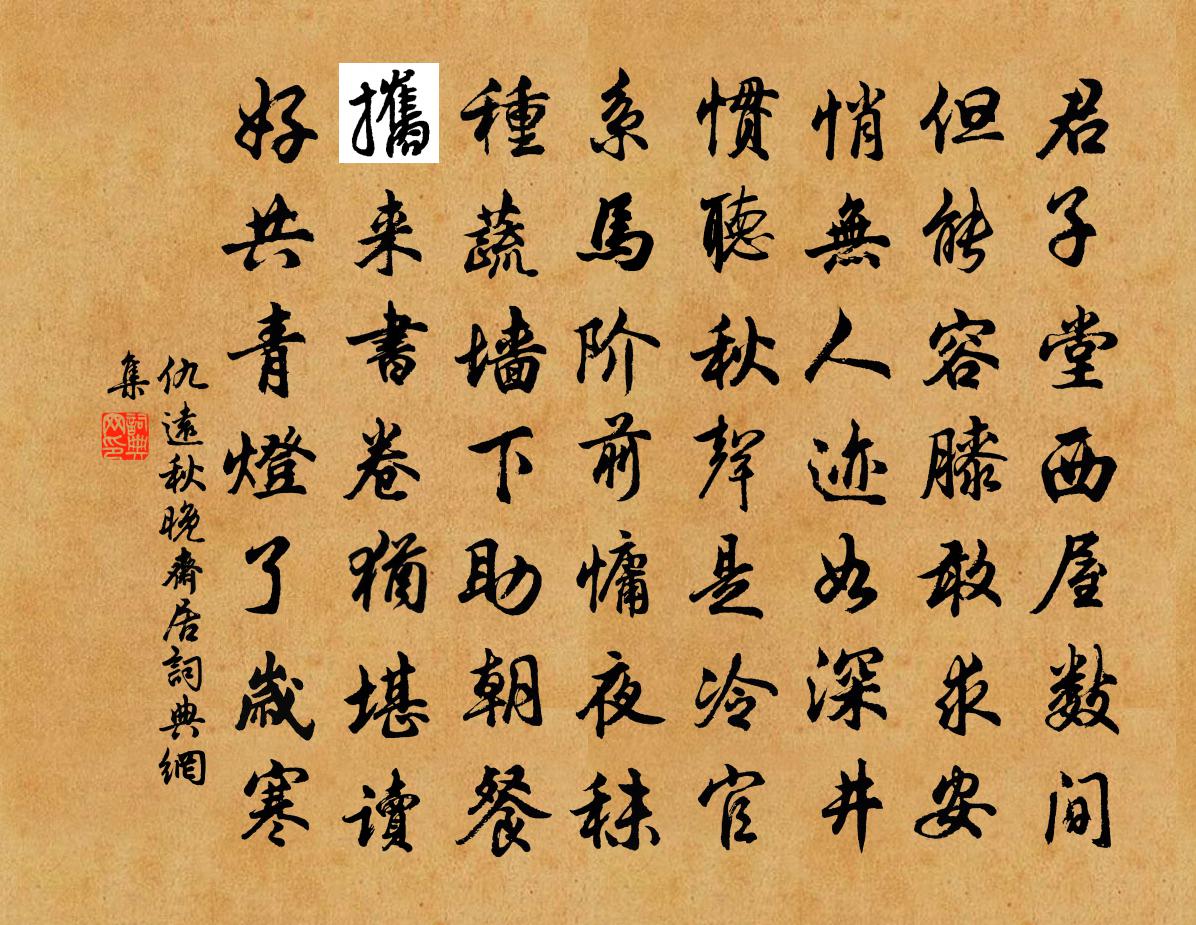 君子堂西屋数间
但能容膝敢求安
悄無人迹如深井
慣聽秋聲是冷官
系馬阶前慵夜秣
種蔬墙下助朝餐
攜来書卷猶堪讀
好共青燈了歲寒
仇遠秋晚齋居詞典網
集
詞典网印